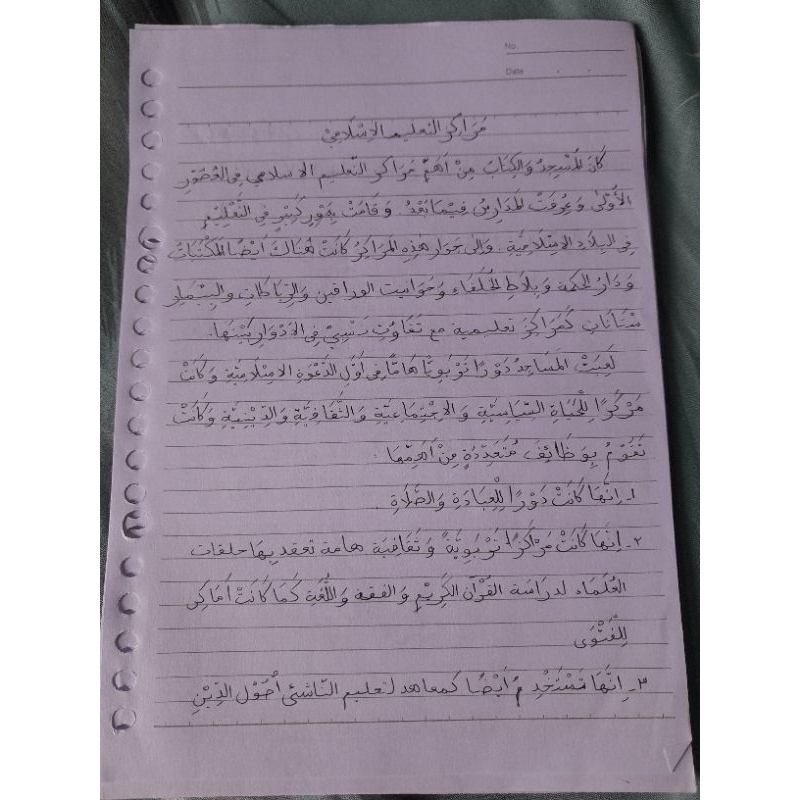 No.
Date
مَرَاكز التعليم الإسْلَامِيْ
كَانَ المَسْجِدُ وَالكِتَابُ مِنْ اَهَمِّ مَرَاكز التَّعليم الاسلامي فِى العُصُوْرِ
الأُوْلَى وَعُرِفَتْ المَدَارِسُ فِيْمَا بَعْدُ. وَقَامَتْ بِدَوْرٍ كَبِيْرٍ فِى التَّعْلِيْمِ
فِى البِلَادِ الإسْلَامِيَّةِ. وَإلى جِوَارِ هٰذِهِ المَرَاكِزُ كَانَتْ هُنَالكَ اَيْضًا المَكْتَبَاتُ
وَدَارُ الحكمة وَبِلَاطِ الخُلَفَاءِ وَحَوَانيت الوراقين وَالرِّبَاطَاتِ والبيمار
ستَانَاتِ كَمَرَاكِزَ تعليمية مع تَفَاوُتِ نِسْبِيّ فِى الاَدْوَارِ بَيْنَهَا.
لَعِبَتْ المَسَاجِدُ دَوْرًا تَرْبَوِيًّا هَامًّا فى اَوَّلِ الدَّعْوَةِ الاِسْلَامِيَّةِ وَكَانَتْ
مَرْكَزًا لِلْحَيَاةِ السِّيَاسِيَّةِ وَالاِجْتِمَاعِيَّةِ وَالثَّقَافِيَّةِ وَالدِّيْنِيَّةِ وَكَانَتْ
تَقُوْمُ بِوَظَائِفَ مُتَعَدِّدَةٍ مِنْ اَهَمِّهَا :
١ـ اِنَّهَا كَانَتْ دَوْرًا لِلْعِبَادَةِ وَالصَّلَاةِ.
٢ـ اِنَّهَا كَانَتْ مَرْاكَزًا تَرْبَوِيَّةً وَثَقَافِيَة هامة تعقد بِهَا حلقات
العُلَمَاء لدراسة القُرْآن الكَرِيْمِ وَالفقه وَاللُّغَةِ كَمَا كَانَتْ اَمَاكن
لِلْفَتْوَى
٣ـ اِنَّهَا تَسْتَخْدِمُ اَيْضًا كمعاهد لتعليم النَّاشئ اُصُوْل الدِّيْنِ